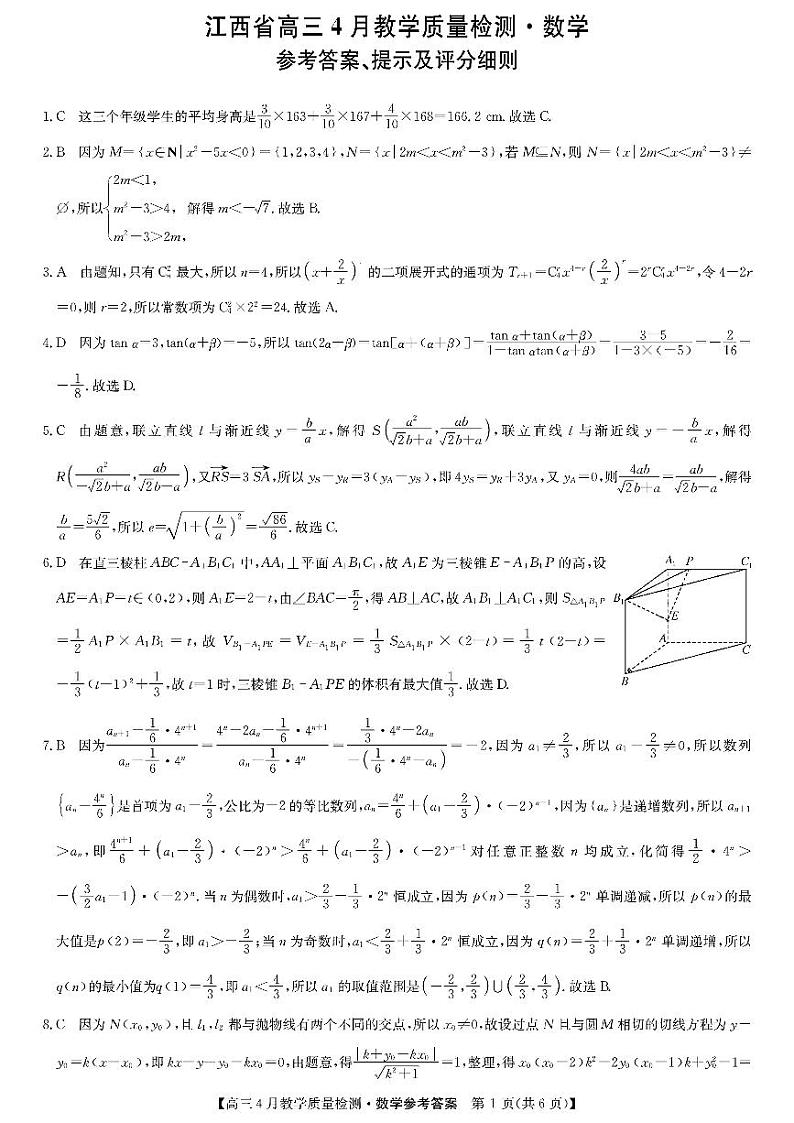 江西省高三 4 月教学质量检测·数学
参考答案、提示及评分细则
1. C 这三个年级学生的平均身高是 3/10×163+3/10×167+4/10×168=166.2 cm. 故选 C.
2. B 因为 M={x∈N|x²-5x<0}={1,2,3,4},N={x|2m<x<m²-3},若 M⊆N,则 N={x|2m<x<m²-3}≠
∅,所以{2m<1, m²-3>4, m²-3>2m, 解得 m<-√7. 故选 B.
3. A 由题知,只有 C²ₙ 最大,所以 n=4,所以(x+2/x)⁴ 的二项展开式的通项为 Tᵣ₊₁=C₄ʳx⁴⁻ʳ(2/x)ʳ=2ʳC₄ʳx⁴⁻²ʳ,令 4-2r
=0,则 r=2,所以常数项为 C₄²×2²=24. 故选 A.
4. D 因为 tan α=3,tan(α+β)=-5,所以 tan(2α+β)=tan[α+(α+β)]=(tan α+tan(α+β))/(1-tan αtan(α+β))=(3-5)/(1-3×(-5))=-2/16=
-1/8. 故选 D.
5. C 由题意,联立直线 l 与渐近线 y=b/a x,解得 S(a²/(√2b+a), ab/(√2b+a)),联立直线 l 与渐近线 y=-b/a x,解得
R(a²/(-√2b+a), ab/(√2b-a)),又RS→=3 SA→,所以 y_S-y_R=3(y_A-y_S),即 4y_S=y_R+3y_A,又 y_A=0,则 4ab/(√2b+a)=ab/(√2b-a),解得
b/a=5√2/6,所以 e=√(1+(b/a)²)=√86/6. 故选 C.
6. D 在直三棱柱 ABC-A₁B₁C₁ 中,AA₁⊥平面 A₁B₁C₁,故 A₁E 为三棱锥 E-A₁B₁P 的高,设
AE=A₁P=t∈(0,2),则 A₁E=2-t,由∠BAC=π/2,得 AB⊥AC,故 A₁B₁⊥A₁C₁,则 S△A₁B₁P
=1/2 A₁P×A₁B₁=t,故 V_{B₁-A₁PE}=V_{E-A₁B₁P}=1/3 S△A₁B₁P×(2-t)=1/3 t(2-t)=
-1/3(t-1)²+1/3,故 t=1 时,三棱锥 B₁-A₁PE 的体积有最大值1/3. 故选 D.
A₁ P C₁
B₁
E
A
C
B
7. B 因为(aₙ₊₁-1/6·4ⁿ⁺¹)/(aₙ-1/6·4ⁿ)=(4ⁿ-2aₙ-1/6·4ⁿ⁺¹)/(aₙ-1/6·4ⁿ)=(1/3·4ⁿ-2aₙ)/(-(1/6·4ⁿ-aₙ))=-2,因为 a₁≠2/3,所以 a₁-2/3≠0,所以数列
{aₙ-4ⁿ/6}是首项为 a₁-2/3,公比为-2 的等比数列,aₙ=4ⁿ/6+(a₁-2/3)·(-2)ⁿ⁻¹,因为{aₙ}是递增数列,所以 aₙ₊₁
>aₙ,即 4ⁿ⁺¹/6+(a₁-2/3)·(-2)ⁿ>4ⁿ/6+(a₁-2/3)·(-2)ⁿ⁻¹ 对任意正整数 n 均成立,化简得 1/2·4ⁿ>
-(3/2a₁-1)·(-2)ⁿ. 当 n 为偶数时,a₁>2/3-1/3·2ⁿ 恒成立,因为 p(n)=2/3-1/3·2ⁿ 单调递减,所以 p(n)的最
大值是p(2)=-2/3,即 a₁>-2/3;当 n 为奇数时,a₁<2/3+1/3·2ⁿ 恒成立,因为 q(n)=2/3+1/3·2ⁿ 单调递增,所以
q(n)的最小值为q(1)=4/3,即 a₁<4/3,所以 a₁ 的取值范围是(-2/3,2/3)∪(2/3,4/3). 故选 B.
8. C 因为 N(x₀,y₀),且 l₁,l₂ 都与抛物线有两个不同的交点,所以 x₀≠0,故设过点 N 且与圆 M 相切的切线方程为 y-
y₀=k(x-x₀),即 kx-y+y₀-kx₀=0,由题意,得|k+y₀-kx₀|/√(k²+1)=1,整理,得 x₀(x₀-2)k²-2y₀(x₀-1)k+y₀²-1=
【高三 4 月教学质量检测·数学参考答案 第 1 页(共 6 页)】